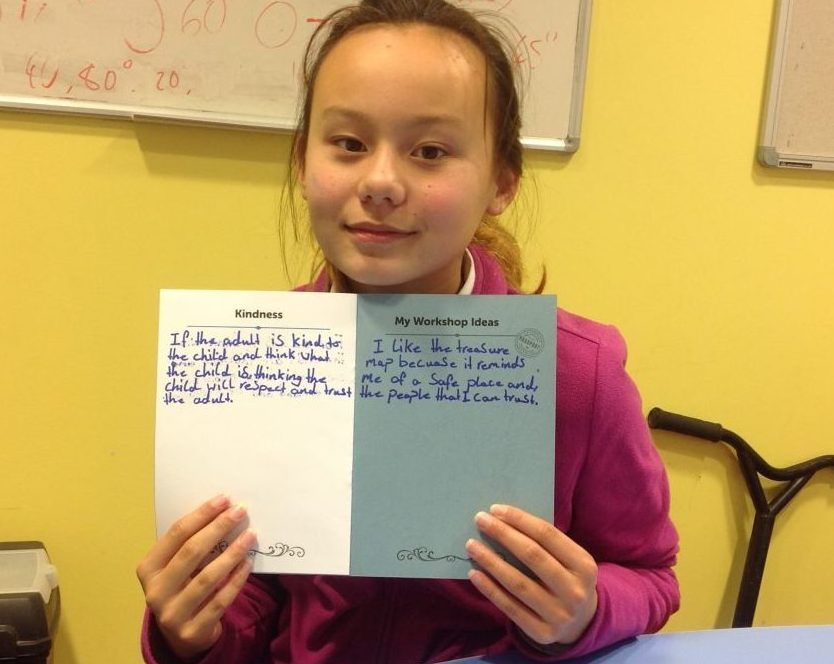 60
40, 80°. 20,
Kindness
If the adult is kind to
the child and think what
the child is thinking the
child will respect and trust
the adult.
My Workshop Ideas
I like the treasure
map becuase it reminds
me of a safe place and
the people that I can trust.